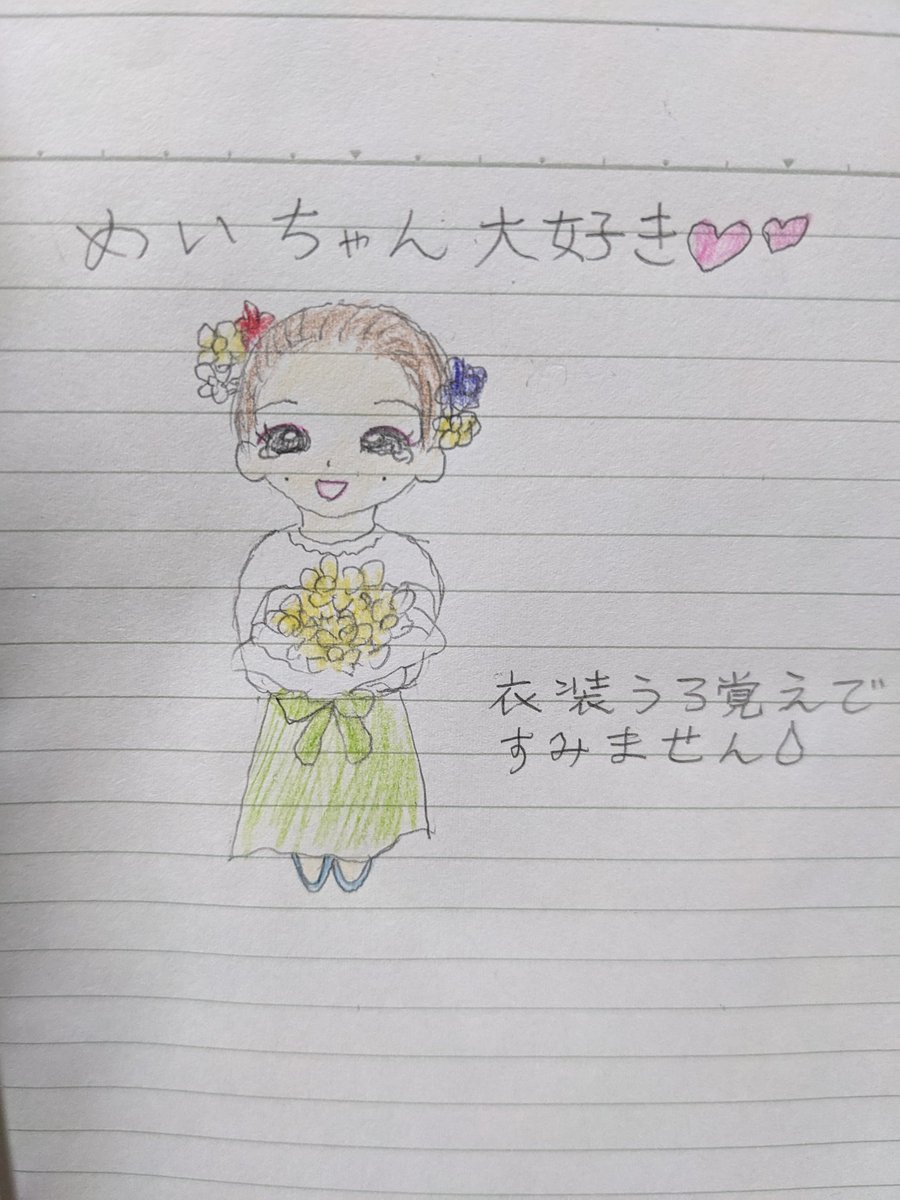 めいちゃん大好き♡♡
衣装うろ覚えで
すみません💧